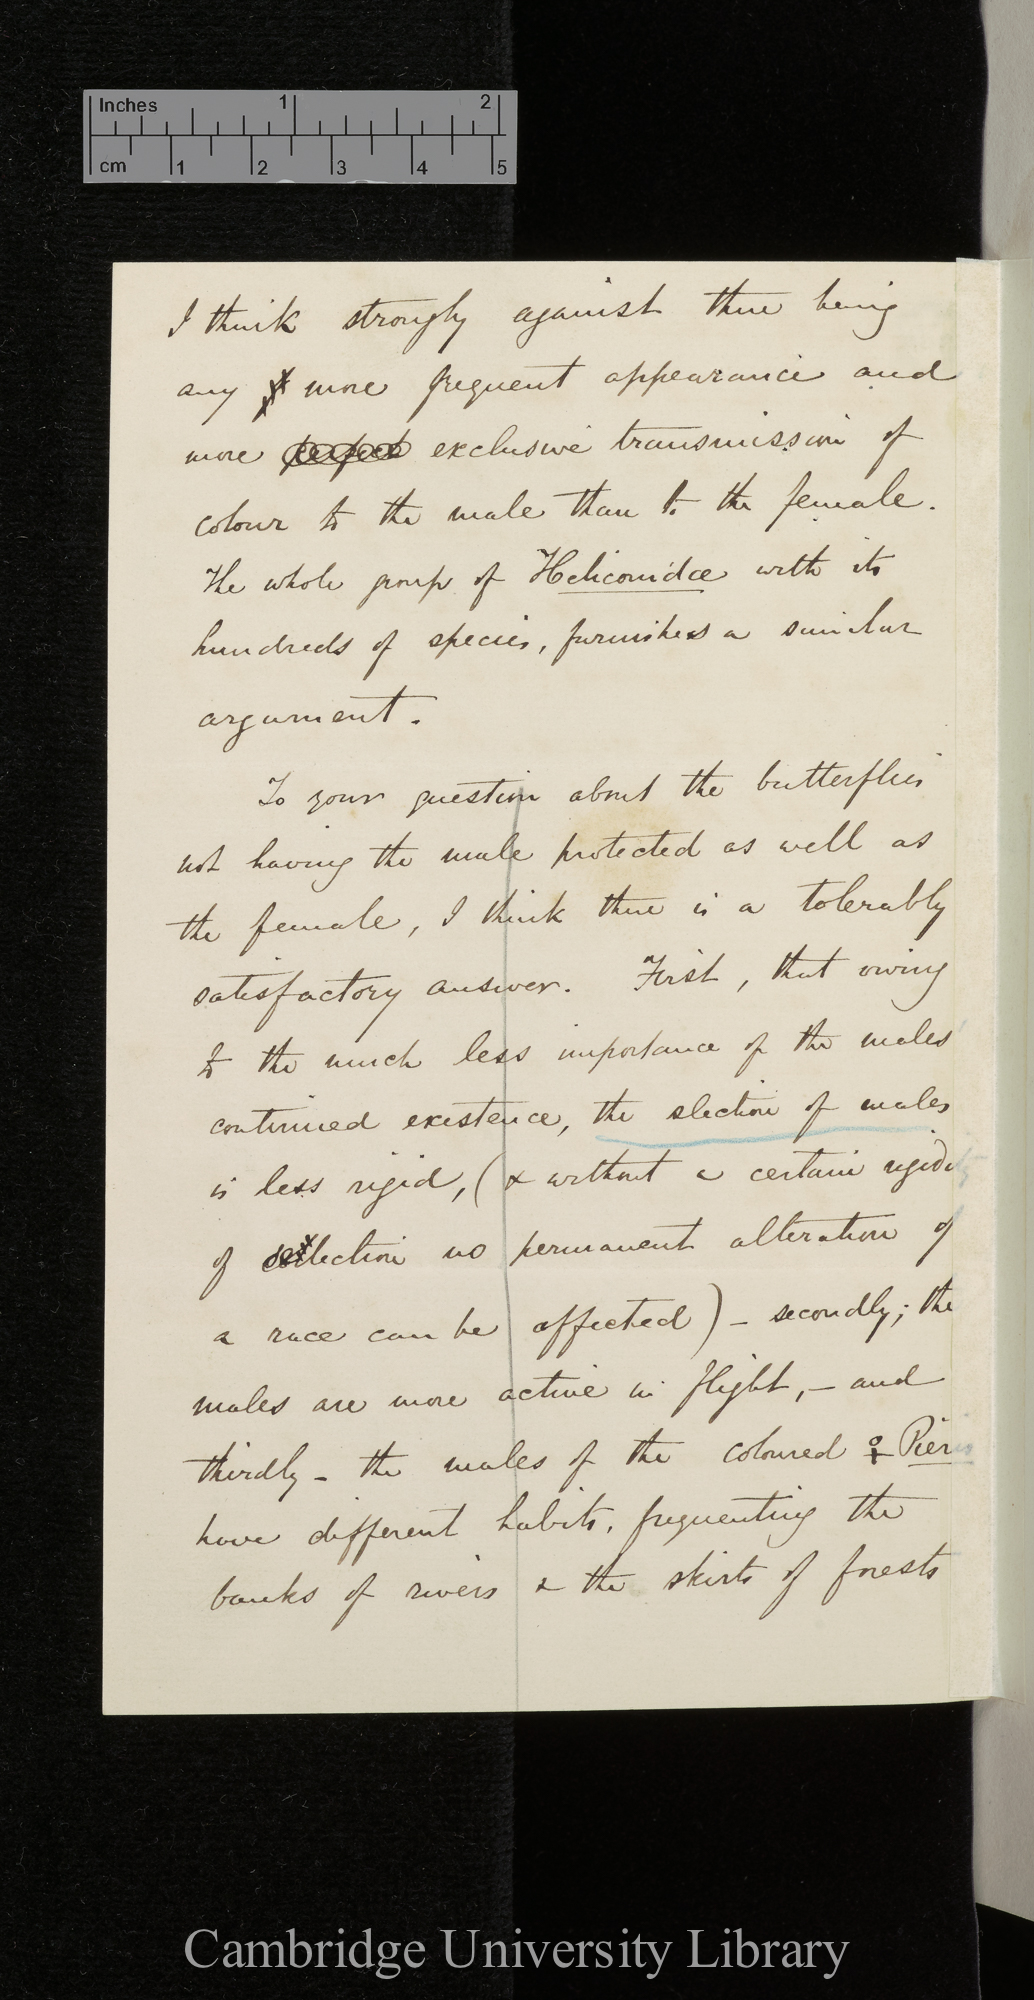 Inches 1 2
cm 1 2 3 4 5
I think strongly against there being
any more frequent appearance and
more perfect exclusive transmission of
colour to the male than to the female.
The whole group of Heliconidæ with its
hundreds of species, furnishes a similar
argument.
To your question about the butterflies
not having the male protected as well as
the female, I think there is a tolerably
satisfactory answer. First, that owing
to the much less importance of the males
continued existence, the slection of males
is less rigid, (& without a certain rigidity
of selection no permanent alteration of
a race can be affected) – secondly; the
males are more active in flight, – and
thirdly – the males of the coloured ♀ Pieris
have different habits, frequenting the
banks of rivers & the skirts of forests
Cambridge University Library